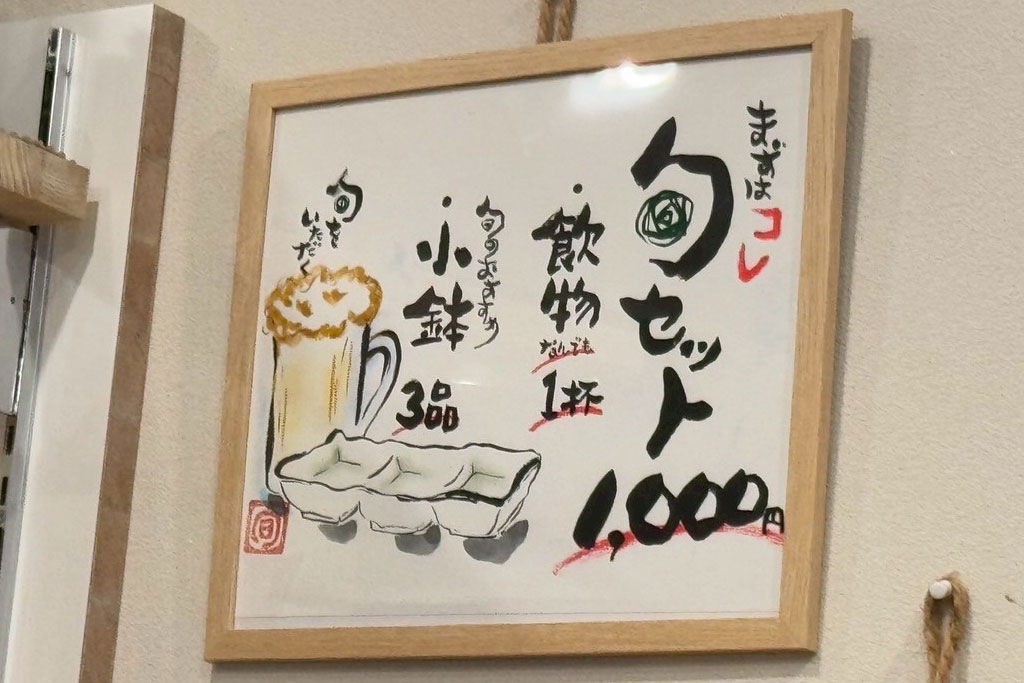 まずはコレ
旬セット
1,000円
・飲物
なんでも
1杯
旬のおすすめ
・小鉢
3品
旬を
いただく
旬